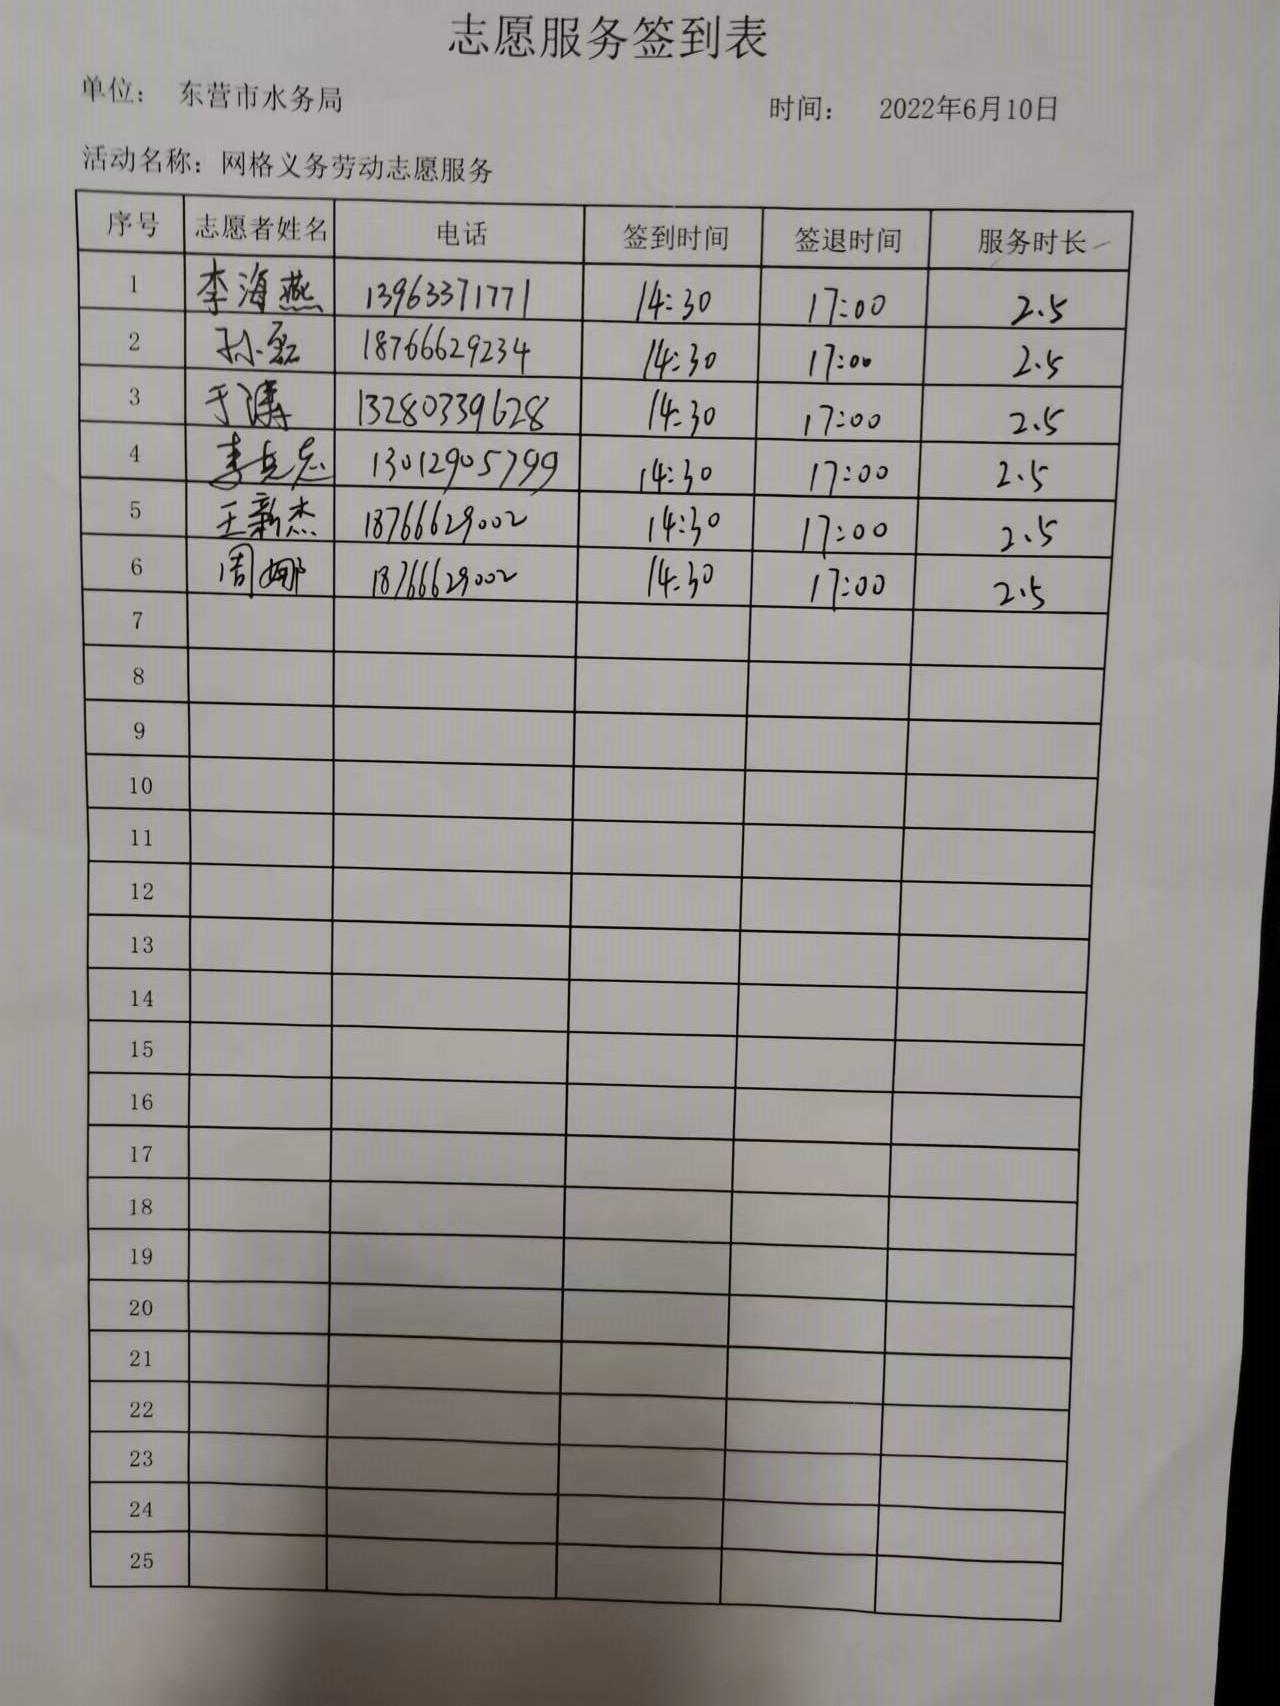 志愿服务签到表
单位： 东营市水务局 时间： 2022年6月10日
活动名称：网格义务劳动志愿服务
序号 志愿者姓名 电话 签到时间 签退时间 服务时长
1 李海燕 13963371771 14:30 17:00 2.5
2 孙磊 18766629234 14:30 17:00 2.5
3 于涛 13280339628 14:30 17:00 2.5
4 李 13012905799 14:30 17:00 2.5
5 王新杰 18766629002 14:30 17:00 2.5
6 周娜 18766629002 14:30 17:00 2.5
7
8
9
10
11
12
13
14
15
16
17
18
19
20
21
22
23
24
25